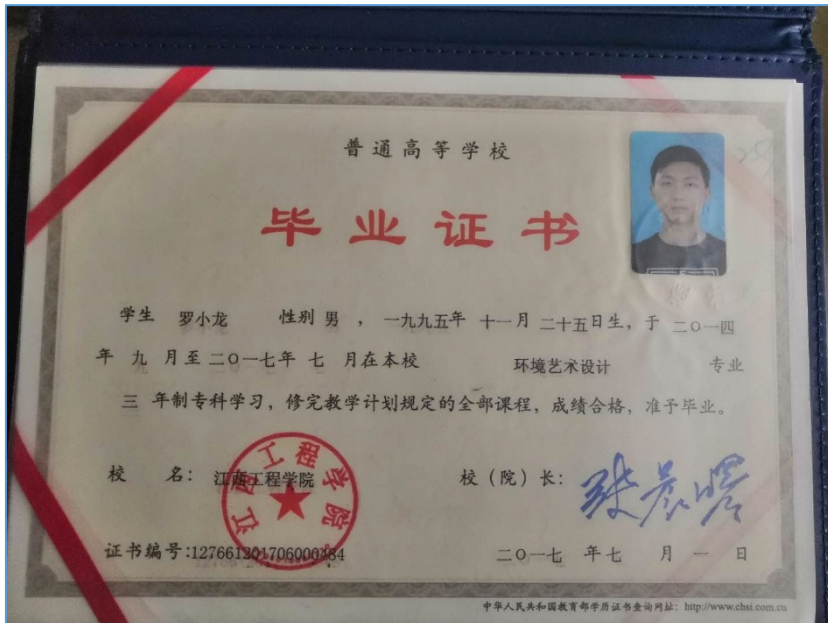 普通高等学校
毕业证书
学生 罗小龙 性别 男 ，一九九五年 十一月 二十五日生，于 二〇一四
年 九 月至 二〇一七年 七 月在本校 环境艺术设计 专业
三 年制专科学习，修完教学计划规定的全部课程，成绩合格，准予毕业。
校 名：江西工程学院 校（院）长：
江西工程学院
证书编号：127661201706000384 二〇一七 年 七 月 一 日
中华人民共和国教育部学历证书查询网址：http://www.chsi.com.cn